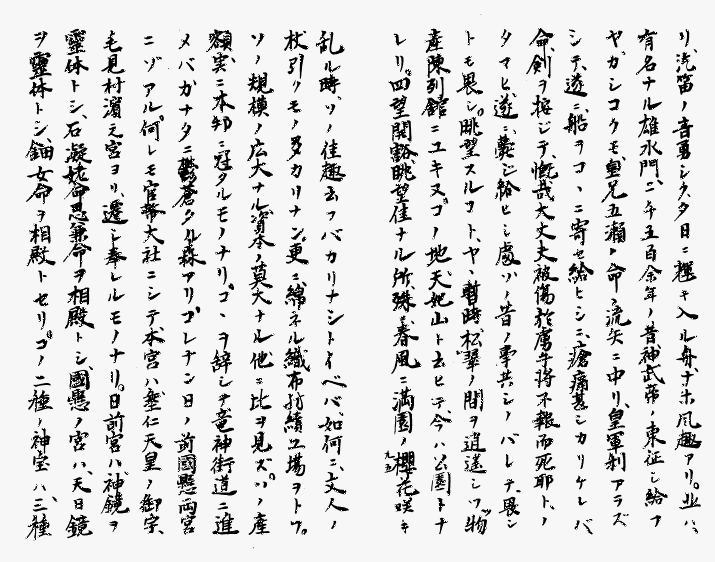 リ、汽笛ノ音勇シク夕日ニ極キ入ル舟ナホ風趣アリ。此ハ、
有名ナル雄水門ニ、午五百余年ノ昔神武帝ノ東征シ給フ
ヤ、カシコクモ皇兄五瀬ノ命ハ流矢ニ中リ、皇軍利アラズ
シテ、遂ニ船ヲコヽニ寄セ給ヒシニ、瘡痛甚シカリケレバ
命、剣ヲ按ジテ、慨哉大丈夫被傷於虜手将不報而死耶ト、ノ
タマヒ、遂ニ薨ジ給ヒシ處、ソノ昔ノ事共シノバレテ、畏シ
トモ畏シ。眺望スルコト、ヤヽ暫時松翠ノ間ヲ逍遥シツ、物
産陳列館ニユキヌ。コノ地天妃山ト云ヒテ、今ハ公園トナ
レリ。四望開豁眺望佳ナル所、殊ニ春風ニ満園ノ櫻花咲キ
乱ル時、ソノ佳趣云フバカリナシトイヘバ、如何ニ、文人ノ
杖引クモノ多カリナン。更ニ綿ネル織布紡績工場ヲトフ。
ソノ規模ノ広大ナル、資本ノ莫大ナル、他ニ比ヲ見ズ。ソノ産
額、実ニ本邦ニ冠タルモノナリ。コヽヲ辞シテ竜神街道ニ進
メバ、カナタニ鬱蒼タル森アリ。コレナン日ノ前國懸両宮
ニゾアル。何レモ官幣大社ニシテ本宮ハ垂仁天皇ノ御宇、
毛見村濱之宮ヨリ、遷シ奉レルモノナリ。日前宮ハ、神鏡ヲ
靈体トシ、石凝姥命思兼命ヲ相殿トシ、國懸ノ宮ハ、天日鏡
ヲ靈体トシ、鈿女命ヲ相殿トセリ。コノ二種ノ神宝ハ、三種